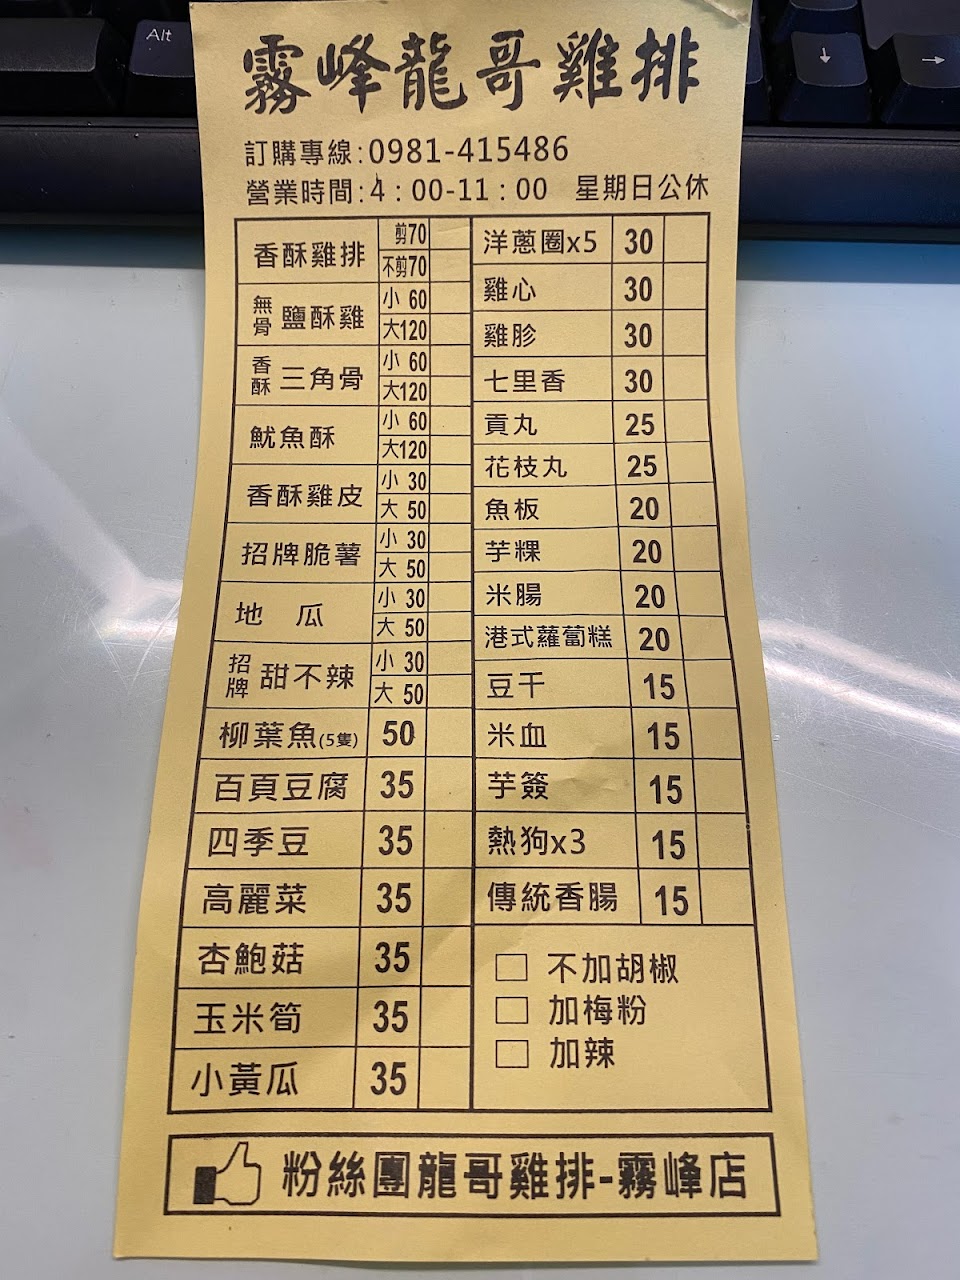 Alt
↓
→
霧峰龍哥雞排
訂購專線:0981-415486
營業時間:4：00-11：00 星期日公休
香酥雞排 剪70
不剪70
無骨 鹽酥雞 小 60
大120
香酥 三角骨 小 60
大120
魷魚酥 小 60
大120
香酥雞皮 小 30
大 50
招牌脆薯 小 30
大 50
地 瓜 小 30
大 50
招牌 甜不辣 小 30
大 50
柳葉魚(5隻) 50
百頁豆腐 35
四季豆 35
高麗菜 35
杏鮑菇 35
玉米筍 35
小黃瓜 35
洋蔥圈x5 30
雞心 30
雞胗 30
七里香 30
貢丸 25
花枝丸 25
魚板 20
芋粿 20
米腸 20
港式蘿蔔糕 20
豆干 15
米血 15
芋簽 15
熱狗x3 15
傳統香腸 15
□ 不加胡椒
□ 加梅粉
□ 加辣
粉絲團龍哥雞排-霧峰店